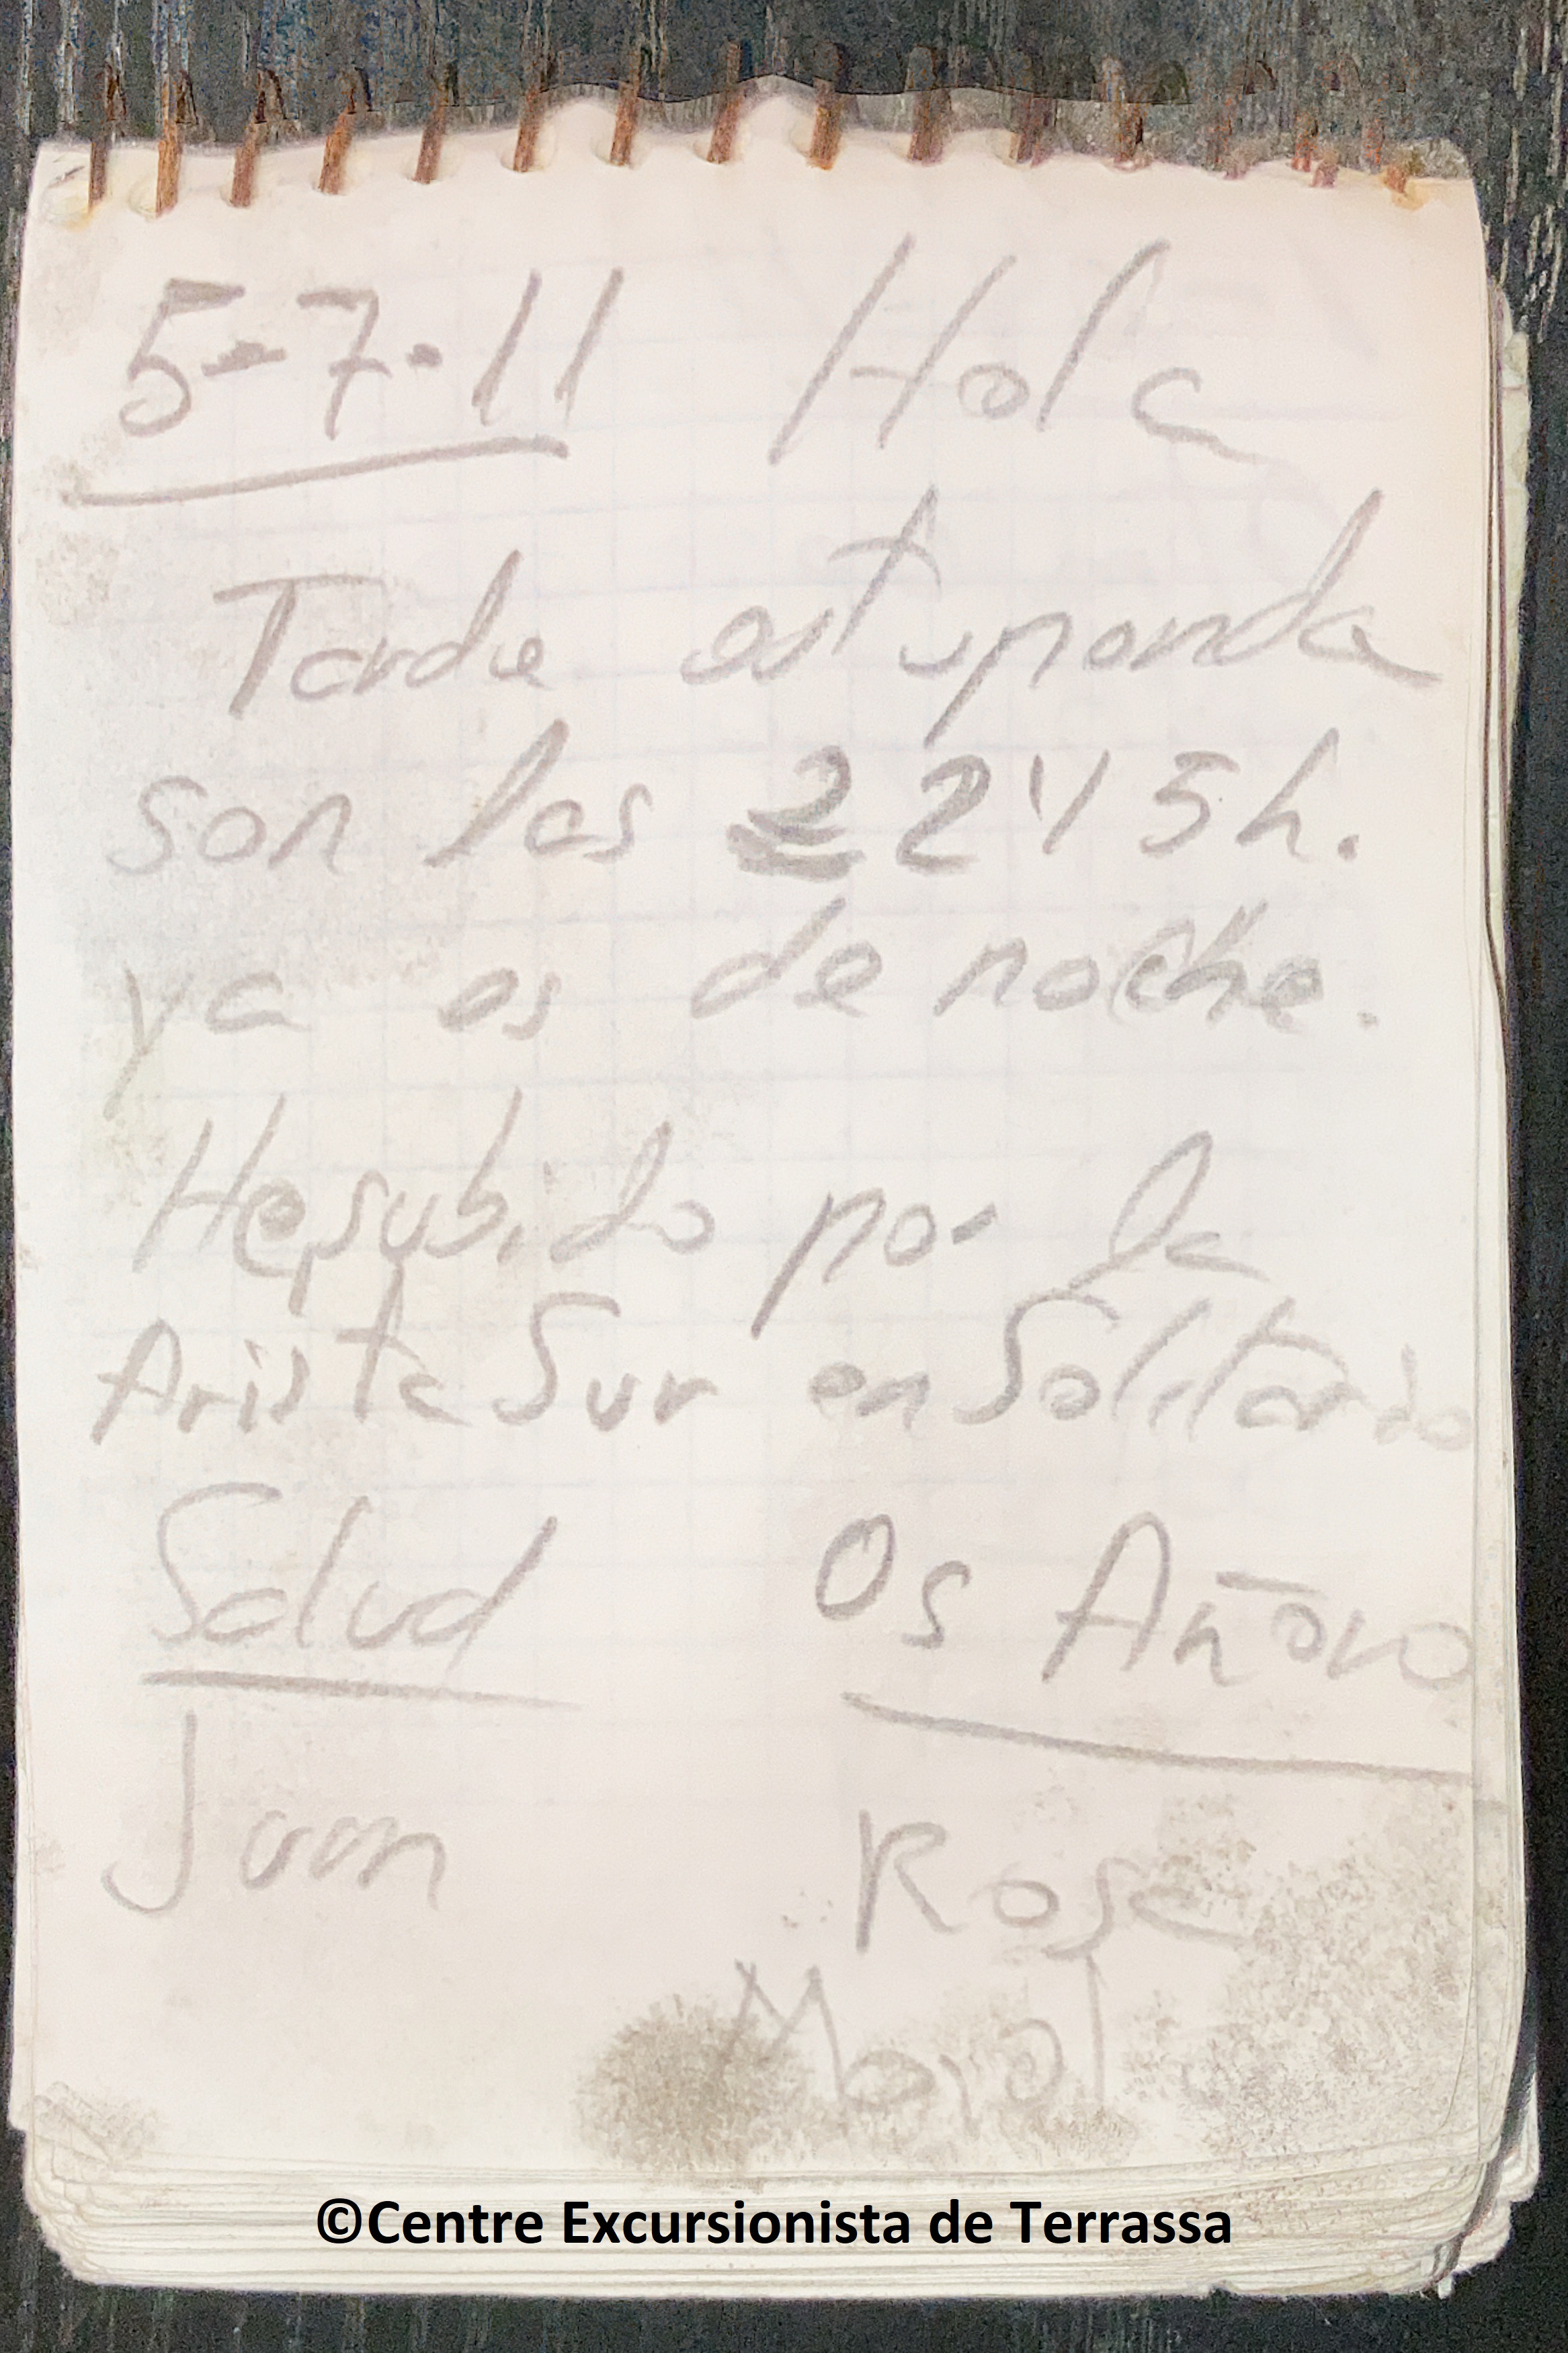 5-7-11 Hola
Tarde estupenda
son las 22'15h.
ya es de noche.
He subido por la
Arista Sur en Solitario
Salud Os Añoro
Juan Rosa
©Centre Excursionista de Terrassa